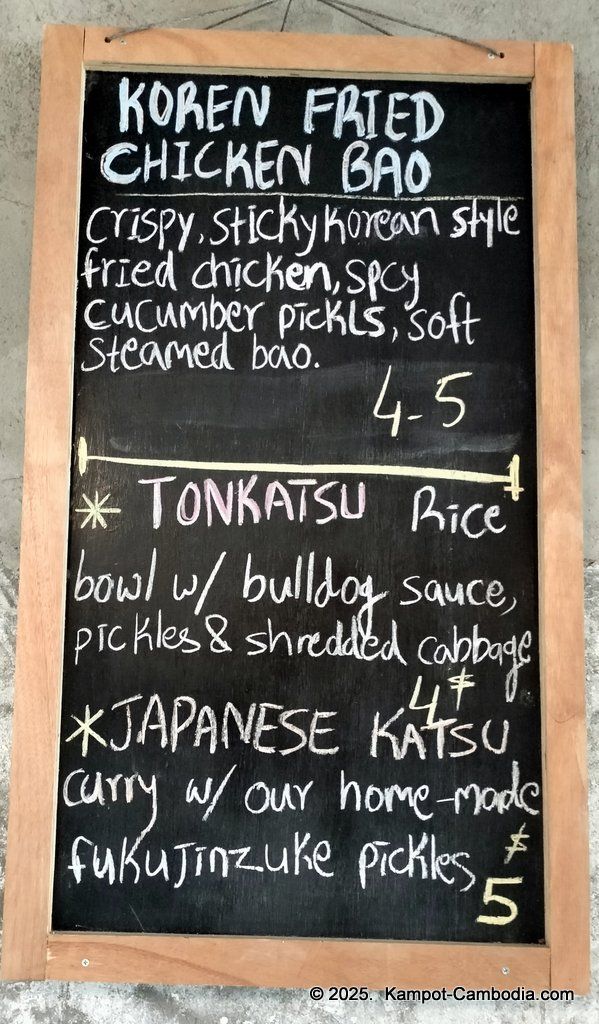 KOREN FRIED
CHICKEN BAO
crispy, sticky korean style
fried chicken, spcy
cucumber pickls, soft
steamed bao.
4-5
* TONKATSU Rice
bowl w/ bulldog sauce,
pickles & shredded cabbage
4$
*JAPANESE KATSU
curry w/ our home-made
fukujinzuke pickles
$
5
© 2025. Kampot-Cambodia.com